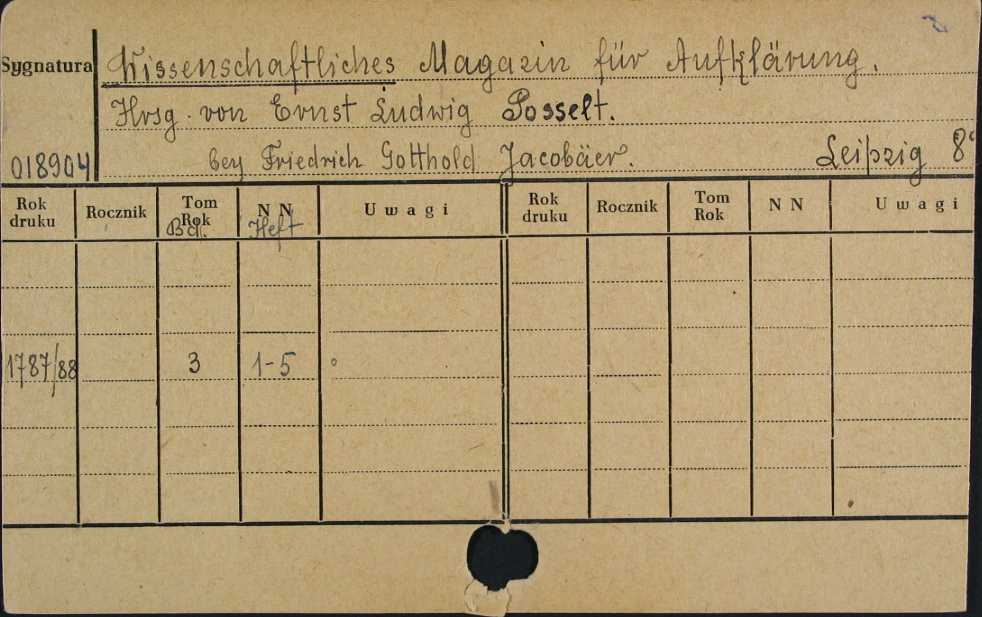 Sygnatura Wissenschaftliches Magazin für Aufklärung.
Hrsg. von Ernst Ludwig Posselt.
018904 bey Friedrich Gotthold Jacobäer. Leipzig 8°
Rok druku Rocznik Tom Rok N N U w a g i Rok druku Rocznik Tom Rok N N U w a g i
Bd. Heft
1787/88 3 1-5